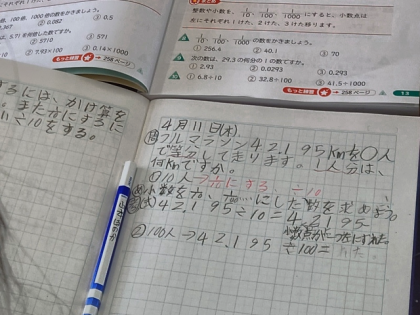 100倍、1000倍の数をかきましょう。
② 0.082
③ 0.5
③ 571
② 5710
② 7.93×100
③ 0.14×1000
もっと練習 → 258ページ
整数や小数を、1/10、1/100、1/1000にすると、小数点は
左にそれぞれ1けた、2けた、3けた移ります。
1/10、1/100、1/1000の数をかきましょう。
① 256.4
② 40.1
③ 70
次の数は、29.3の何分の1の数ですか。
① 2.93
② 0.293
③ 0.0293
① 6.8÷10
② 32.8÷100
③ 41.5÷1000
もっと練習 → 258ページ
13
するには、かけ算を
÷10をする。
4月11日(水)
フルマラソン42.195kmを〇人
で等分して走ります。1人分は、
何kmですか。
①10人→1/10にする ÷10
小数を1/10、1/100…にした数を求めよう
42.195÷10=4.2195
②100人→42.195
÷100=